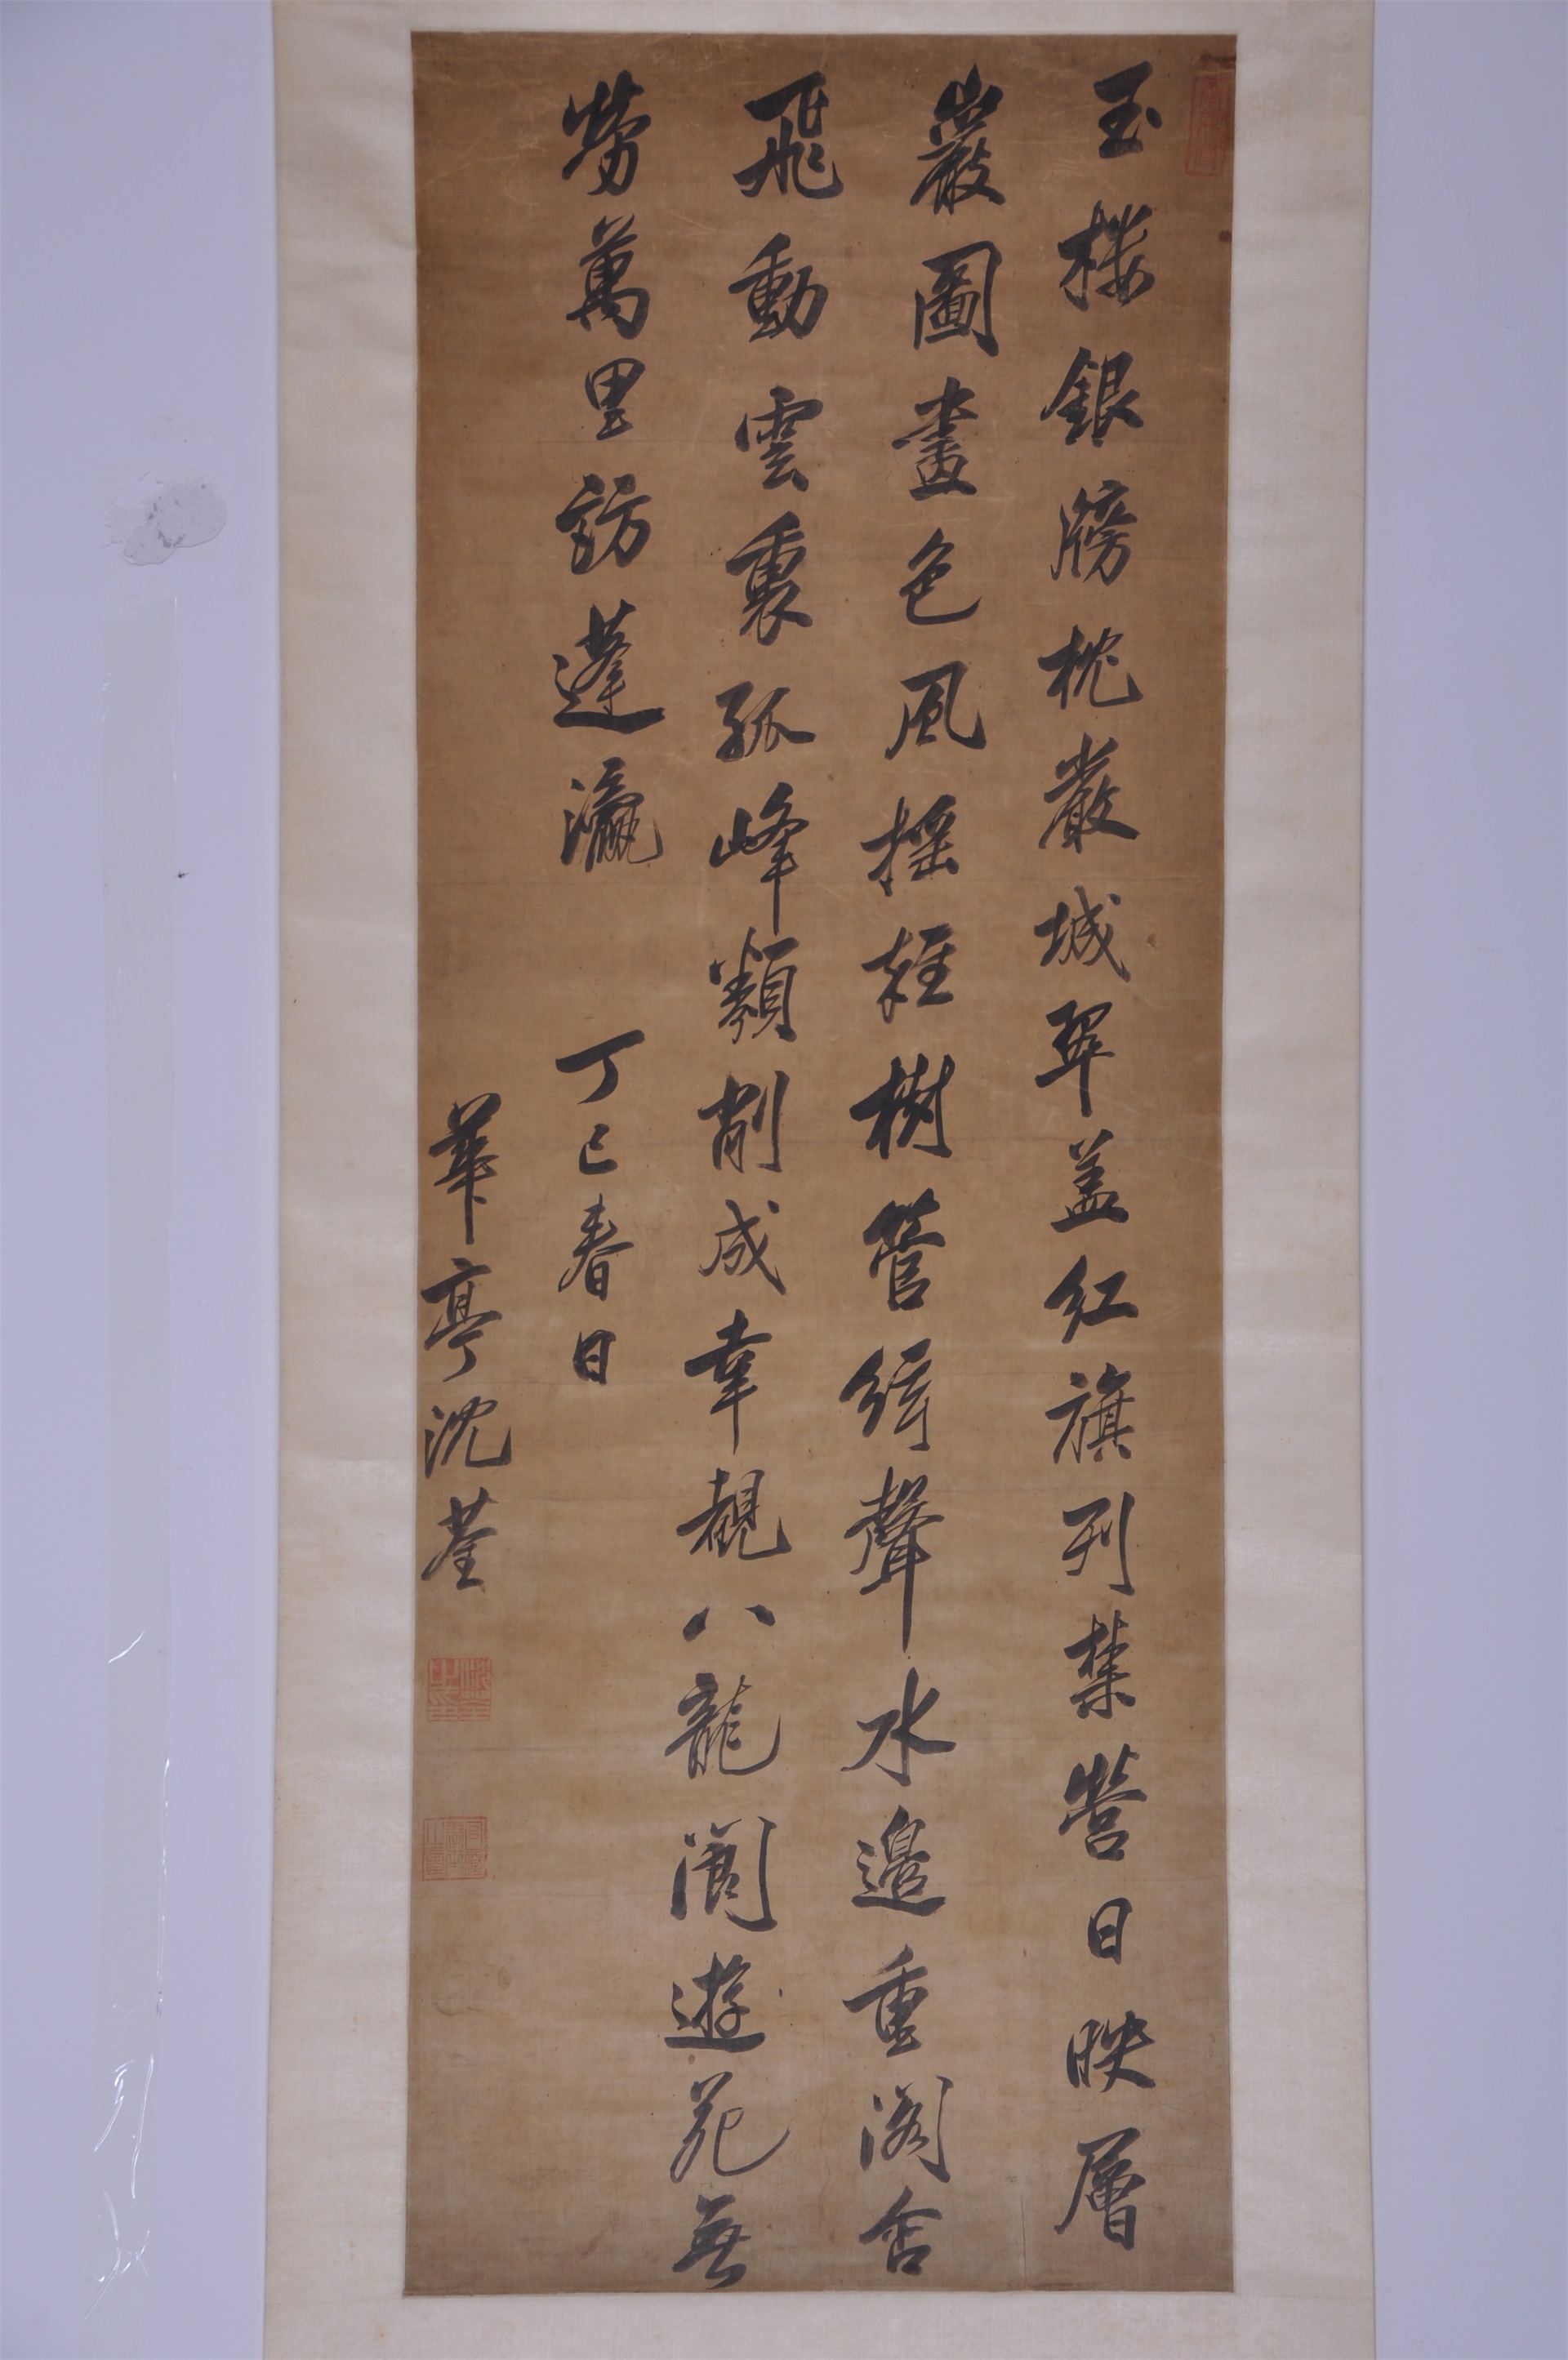 玉樓銀牓枕嚴城翠盖紅旗列禁營日映層
巖圖畫色風摇雜樹管絃聲水邊重閣含
飛動雲裏孤峰類削成幸覩八龍閬遊苑無
勞萬里訪蓬瀛 丁巳春日
華亭沈荃